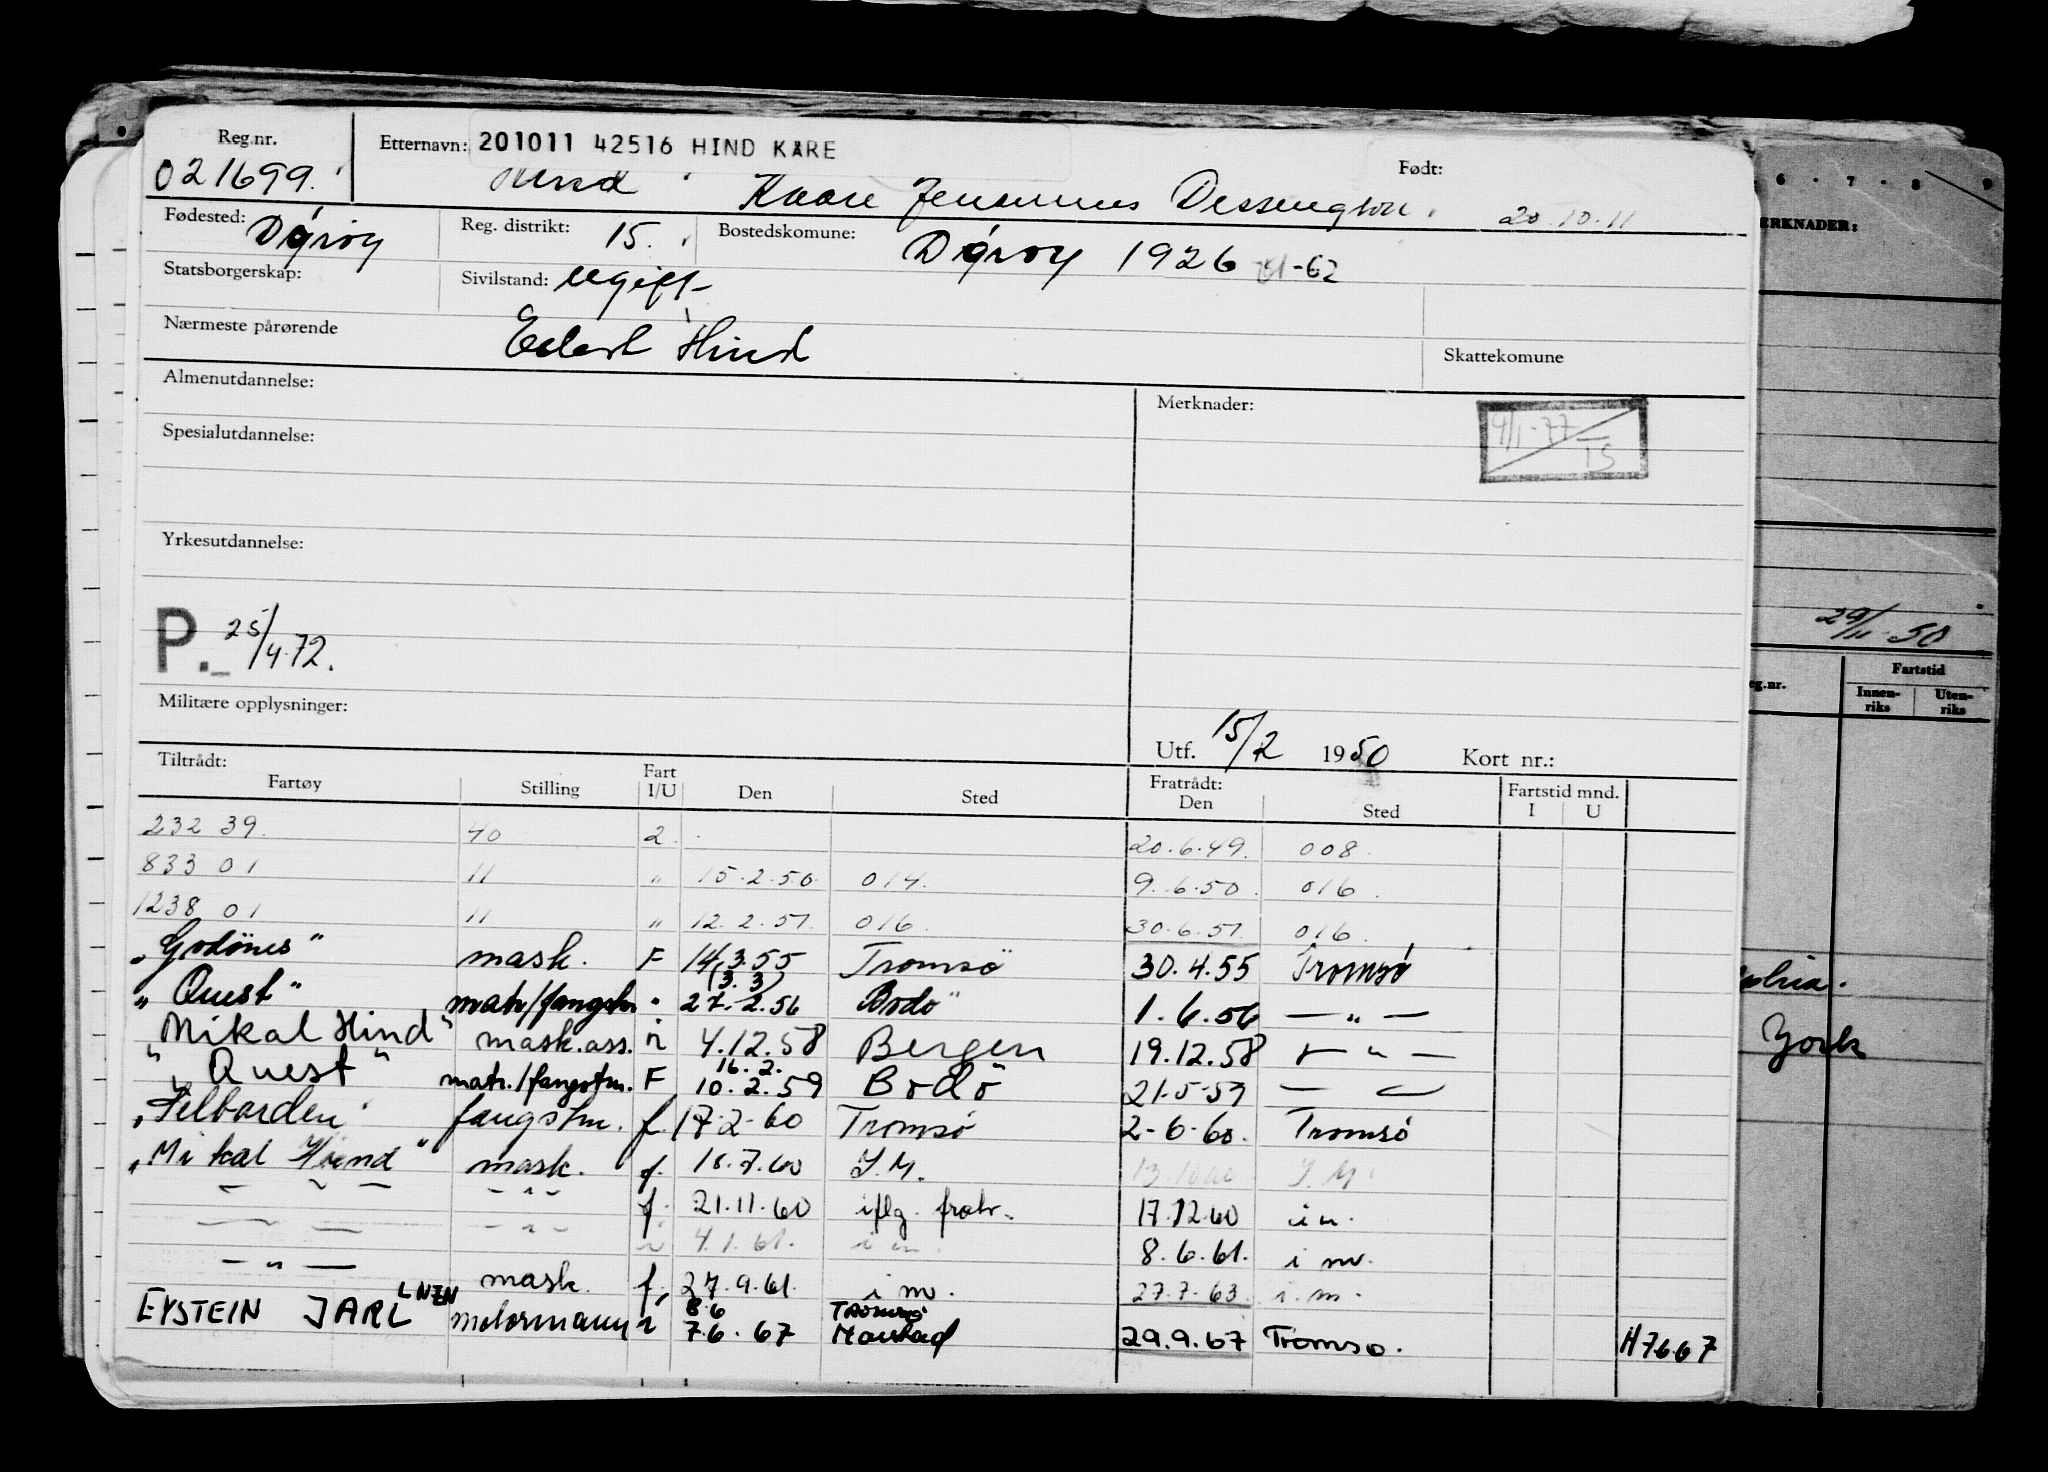 Reg.nr. Etternavn: 201011 42516 HIND KARE Født:
021699. Hind Kaare 20.10.11
Fødested: Dýrøy Reg. distrikt: 15. Bostedskomune: Dýrøy 1926 -62
Statsborgerskap: Sivilstand: Ugift
Nærmeste pårørende Edest Hind Skattekomune
Almenutdannelse: Merknader: 4/1-77 TS
Spesialutdannelse:
Yrkesutdannelse:
P. 25/4.72.
Militære opplysninger:
Utf. 15/2 1950 Kort nr.:
Tiltrådt: Fratrådt: Fartstid mnd.
Fartøy Stilling Fart I/U Den Sted Den Sted I U
232 39. 40 2. 20.6.49. 008.
833 01 " " 15.2.50. 014. 9.6.50. 016.
1238 01 " " 12.2.51. 016. 30.6.51. 016.
"Godönes" mask. F 14.3.55 Tromsö 30.4.55 Tromsö
(3.3)
"Quest" matr/fangstm " 27.2.56 Bodö 1.6.56 — " —
"Mikal Hind" mask.ass. i 4.12.58 Bergen 19.12.58 — " —
16.2.
"Quest" matr./fangstm. F 10.2.59 Bodö 21-5-59 —
"Selbarden" fangstm. f. 17-2-60 Tromsö 2-6-60. Tromsö
"Mikal Hind" mask. f. 18.7.60 I.M. 13.10.60 I.M.
— " — — " — f. 21.11.60 iflg. fratr. 17.12.60 i m.
— " — — " — i 4.1.61. i m. 8.6.61. i m.
— " — mask. f. 27.9.61. i m. 27.7.63. i.m.
LNZN 8.6 TROMSØ
EYSTEIN JARL motormann i 7.6.67 Harstad 29.9.67 Tromsø. H7667
6 . 7 . 8 9
ERKNADER:
29/11-50
eg.nr. Fartstid
Innen-riks Uten-riks
York